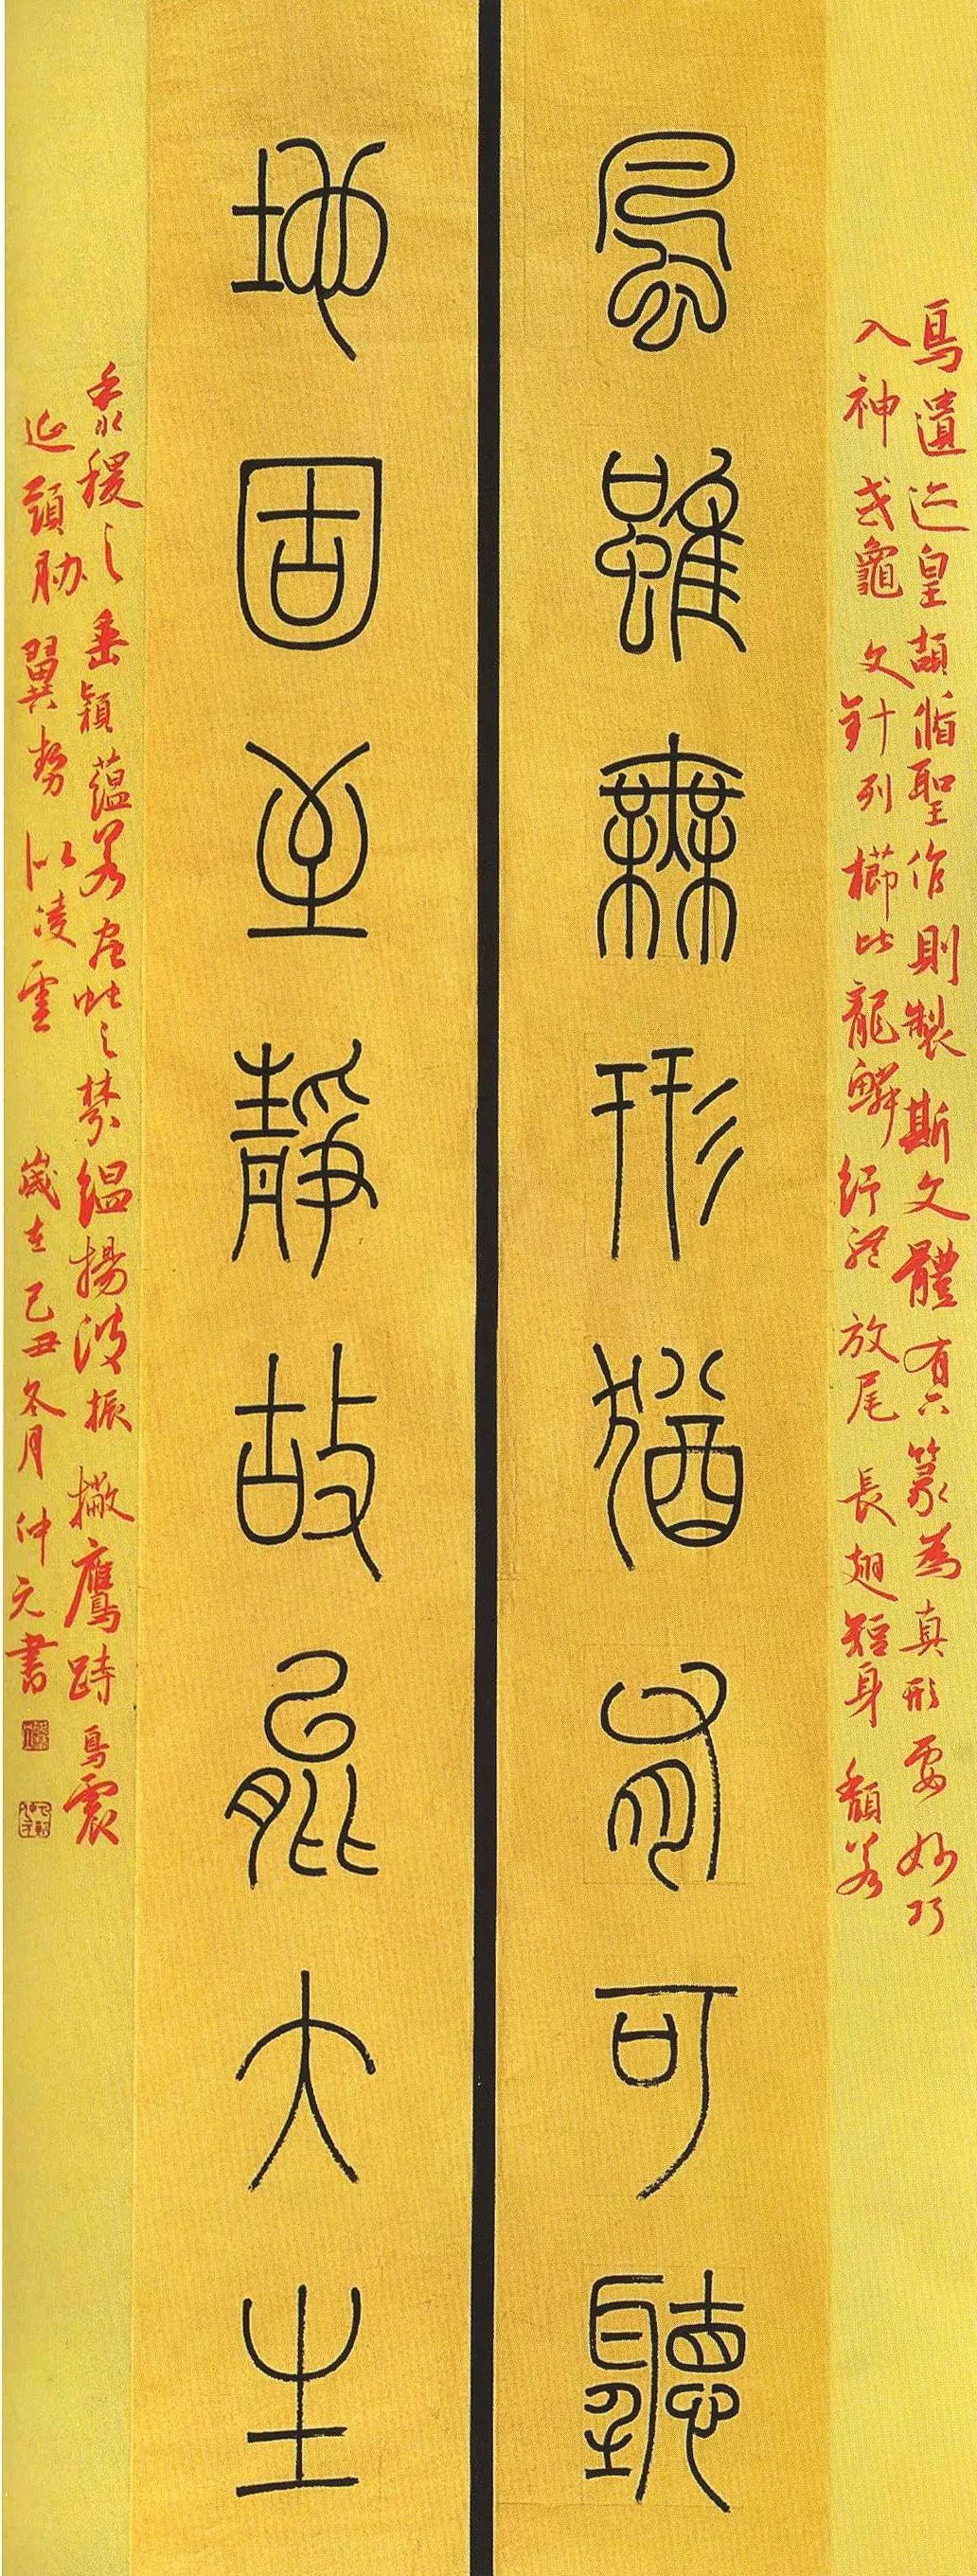 鳥遺迹皇頡循聖作則製斯文體有六篆為真形要妙巧
入神或龜文針列櫛比龍鱗紓體放尾長翅短身頹若
風雖無形猶有可聽
地固至靜故能大生
黍稷之垂穎蘊若蟲蛇之棼縕揚波振撇鷹跱鳥震
延頸胁翼勢似凌雲歲在己丑冬月仲元書